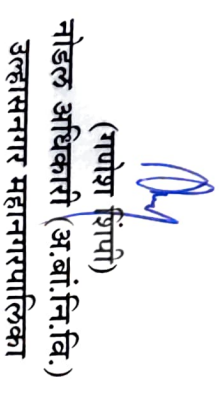 (गणेश शिंपी)
नोडल अधिकारी (अ.बां.नि.वि.)
उल्हासनगर महानगरपालिका